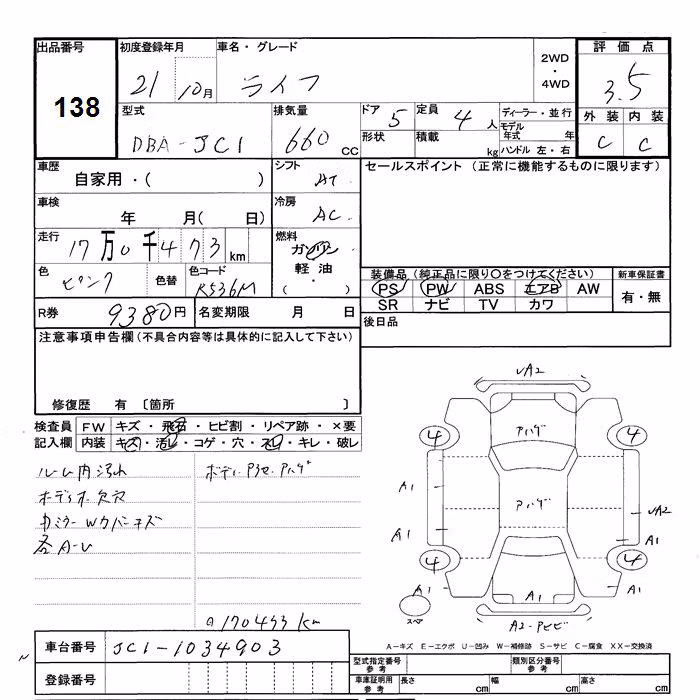 出品番号 初度登録年月 車名・グレード 評価点
138
21 10月 ライフ 2WD・4WD 3.5
型式 排気量 ドア 5 定員 4人 ディーラー・並行 外装 内装
DBA-JC1 660cc 形状 積載 kg モデル年式 年 ハンドル 左・右 C C
車歴 自家用・( ) シフト AT セールスポイント (正常に機能するものに限ります)
車検 年 月( 日) 冷房 AC
走行 17万0千473km 燃料 ガソリン 軽油 ( ・ )
色 ピンク 色替 色コード R536M
装備品 (純正品に限り○をつけてください) 新車保証書
PS PW ABS エアB AW 有・無
SR ナビ TV カワ
R券 9380円 名変期限 月 日 後日品
注意事項申告欄(不具合内容等は具体的に記入して下さい)
修復歴 有 〔箇所 〕
検査員記入欄 FW キズ・飛石・ヒビ割・リペア跡・×要
内装 キズ・汚レ・コゲ・穴・スレ・キレ・破レ
ルーム内汚れ
オーディオ欠穴
各A-U
170473km
A2
アハゲ
4 4
アハゲ
A1 A2
A1 A1
4 4
A1 A1 A1
スペア
A2-
A-キズ E-エクボ U-凹み W-補修跡 S-サビ C-腐食 XX-交換済
車台番号 JC1-1034903
登録番号
型式指定番号 参考 類別区分番号 参考
車庫証明用 参考 長さ cm 幅 cm 高さ cm